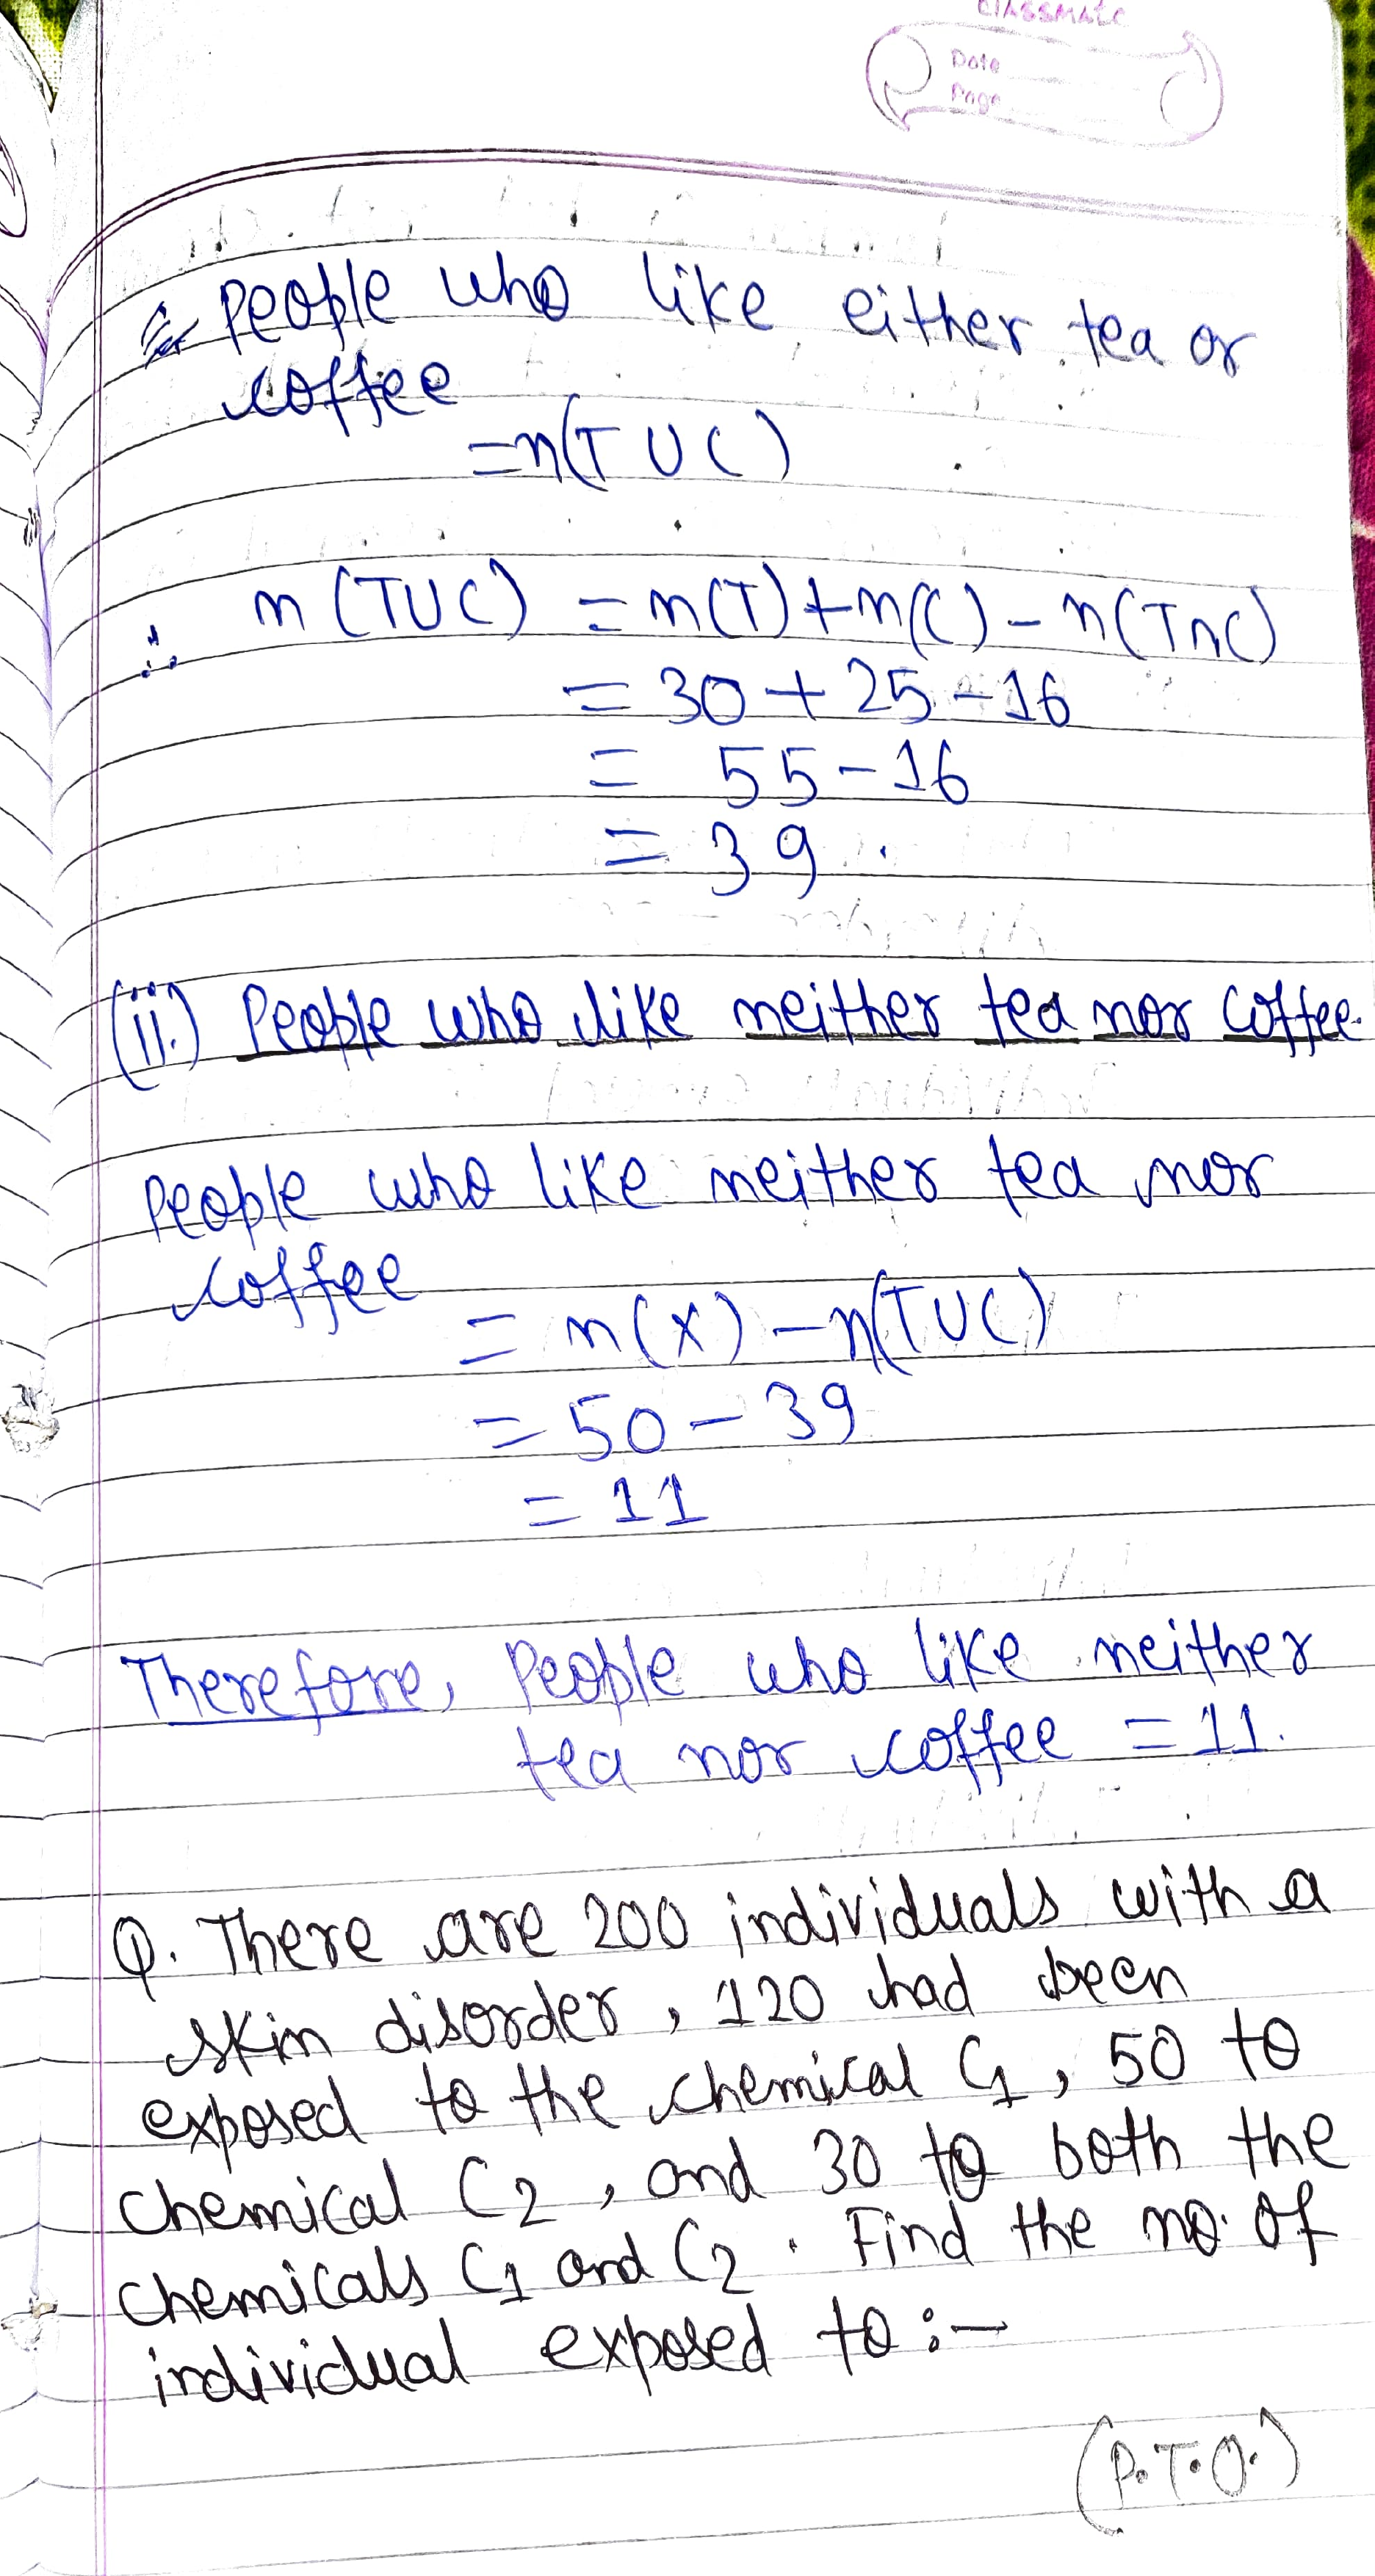 classmate
Date
Page
People who like either tea or
coffee
=n(T U C)
∴ n(TUC) = n(T)+n(C)-n(T∩C)
= 30+25-16
= 55-16
= 39.
(ii.) People who like neither tea nor coffee.
People who like neither tea nor
coffee
= n(X)-n(TUC)
= 50-39
= 11
Therefore, People who like neither
tea nor coffee = 11.
Q. There are 200 individuals with a
skin disorder, 120 had been
exposed to the chemical C1, 50 to
chemical C2, and 30 to both the
chemicals C1 and C2. Find the no. of
individual exposed to :-
(P.T.O.)